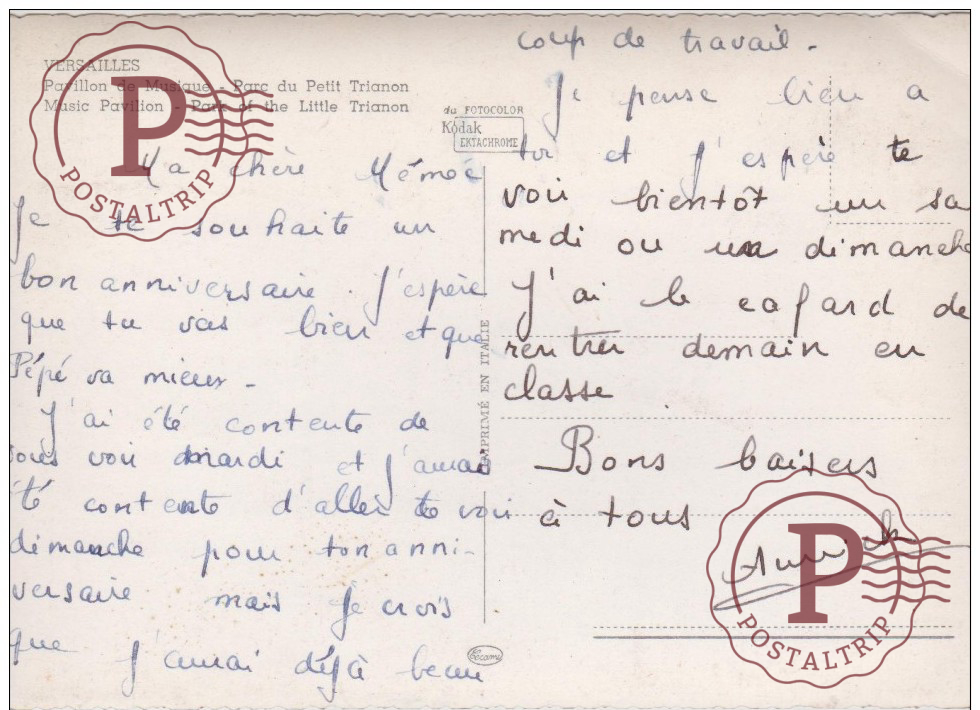 VERSAILLES
Pavillon de Musique - Parc du Petit Trianon
Music Pavilion - Park of the Little Trianon
du FOTOCOLOR
Kodak
EKTACHROME
Ma chère Mémée
Je te souhaite un
bon anniversaire. J'espère
que tu vas bien et que
Pépé va mieux -
J'ai été contente de
vous voir mardi et j'aurais
été contente d'aller te voir
dimanche pour ton anni-
versaire mais je crois
que j'aurai déjà beau
coup de travail -
Je pense bien a
toi et j'espère te
voir bientôt un sa
medi ou un dimanche
J'ai le cafard de
rentrer demain en
classe
Bons baisers
à tous
Annick
IMPRIMÉ EN ITALIE
POSTALTRIP
POSTALTRIP